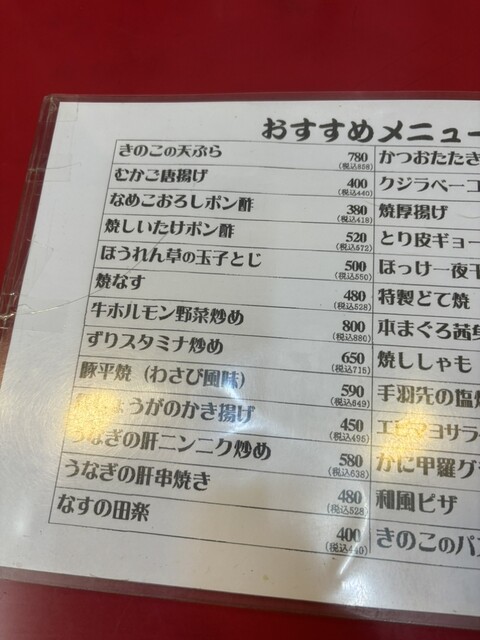 おすすめメニュー
きのこの天ぷら 780 (税込858)
むかご唐揚げ 400 (税込440)
なめこおろしポン酢 380 (税込418)
焼しいたけポン酢 520 (税込572)
ほうれん草の玉子とじ 500 (税込550)
焼なす 480 (税込528)
牛ホルモン野菜炒め 800 (税込880)
ずりスタミナ炒め 650 (税込715)
豚平焼（わさび風味） 590 (税込649)
しょうがのかき揚げ 450 (税込495)
うなぎの肝ニンニク炒め 580 (税込638)
うなぎの肝串焼き 480 (税込528)
なすの田楽 400 (税込440)
かつおたたき
クジラベーコ
焼厚揚げ
とり皮ギョー
ほっけ一夜干
特製どて焼
本まぐろ茜身
焼ししゃも
手羽先の塩焼
エビマヨサラ
かに甲羅グ
和風ピザ
きのこのパ